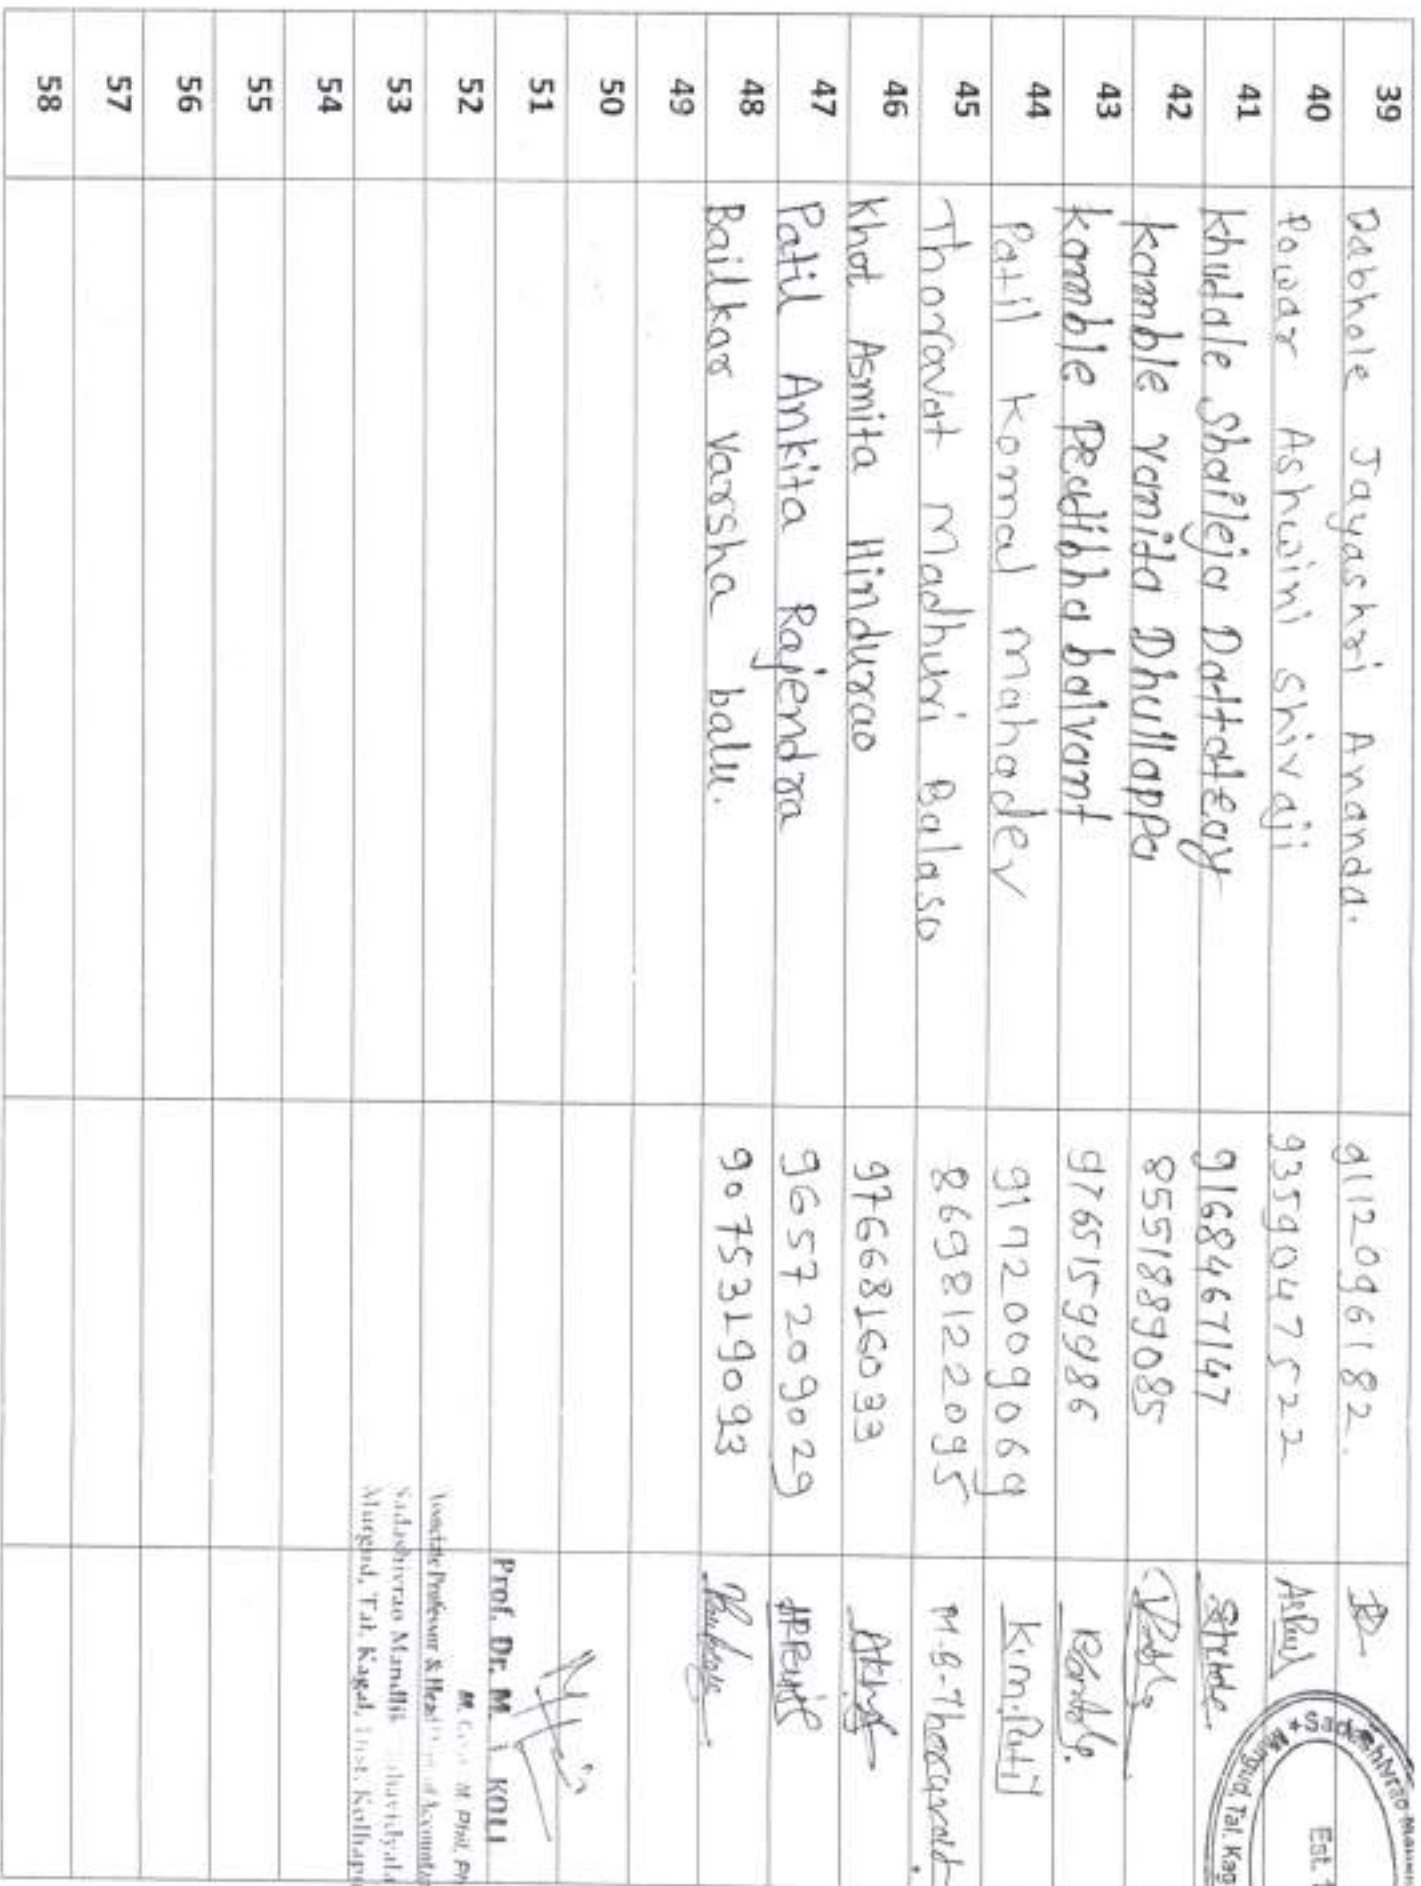 39 Dabhole Jayashri Ananda. 9112096182.
40 Powar Ashwini shivaji 9359047522
41 khudale Shaileja Dattatray 9168467147
42 kamble Vanita Dhullappa 8551889085
43 kamble balvant 9765159986
44 Patil Komal mahadev 9172009069 K.m.Patil
45 Thoravat Madhuri Balaso 8698122095 M.B.Thoravat.
46 Khot Asmita Hindurao 9766816033
47 Patil Ankita Rajendra 9657209029
48 Bailkar Varsha balu. 9075319093
49
50
51
52
53
54
55
56
57
58
Prof. Dr. M. KOLI
M. Phil.
Associate Professor & Head
Sadashivrao Mandlik
Murgud, Tal. Kagal, Dist. Kolhapur
Sadashivrao
Murgud, Tal. Kag
Est.